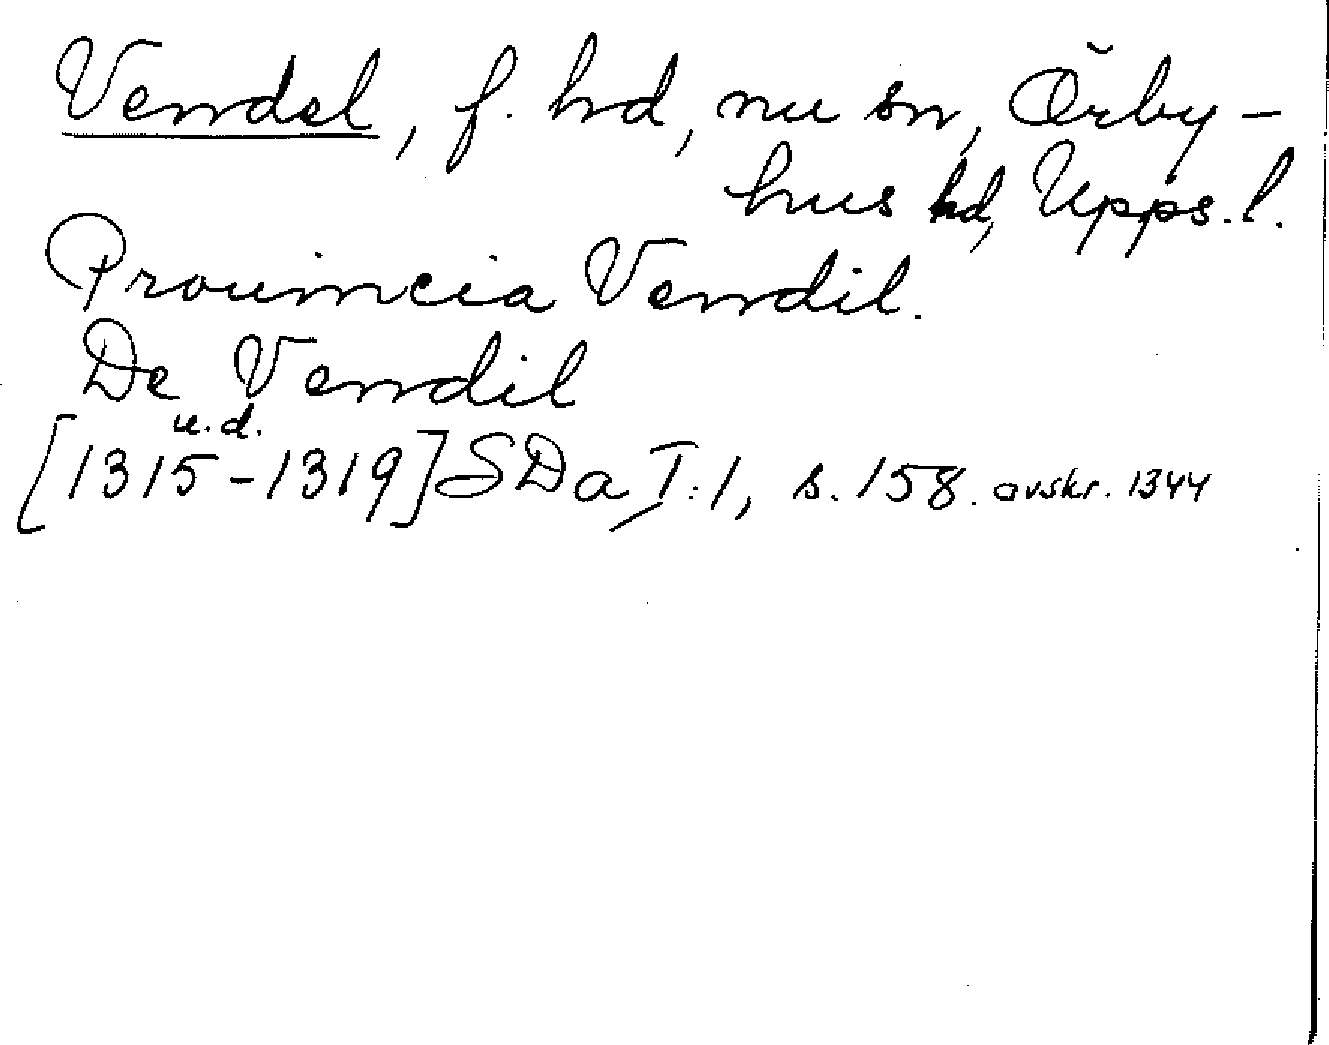 Vendel, f. hd, nu sn, Örby-
hus hd, Upps. l.
Prouincia Vendil.
De Vendil
u.d.
[1315-1319] SDa I:1, s. 158. avskr. 1344